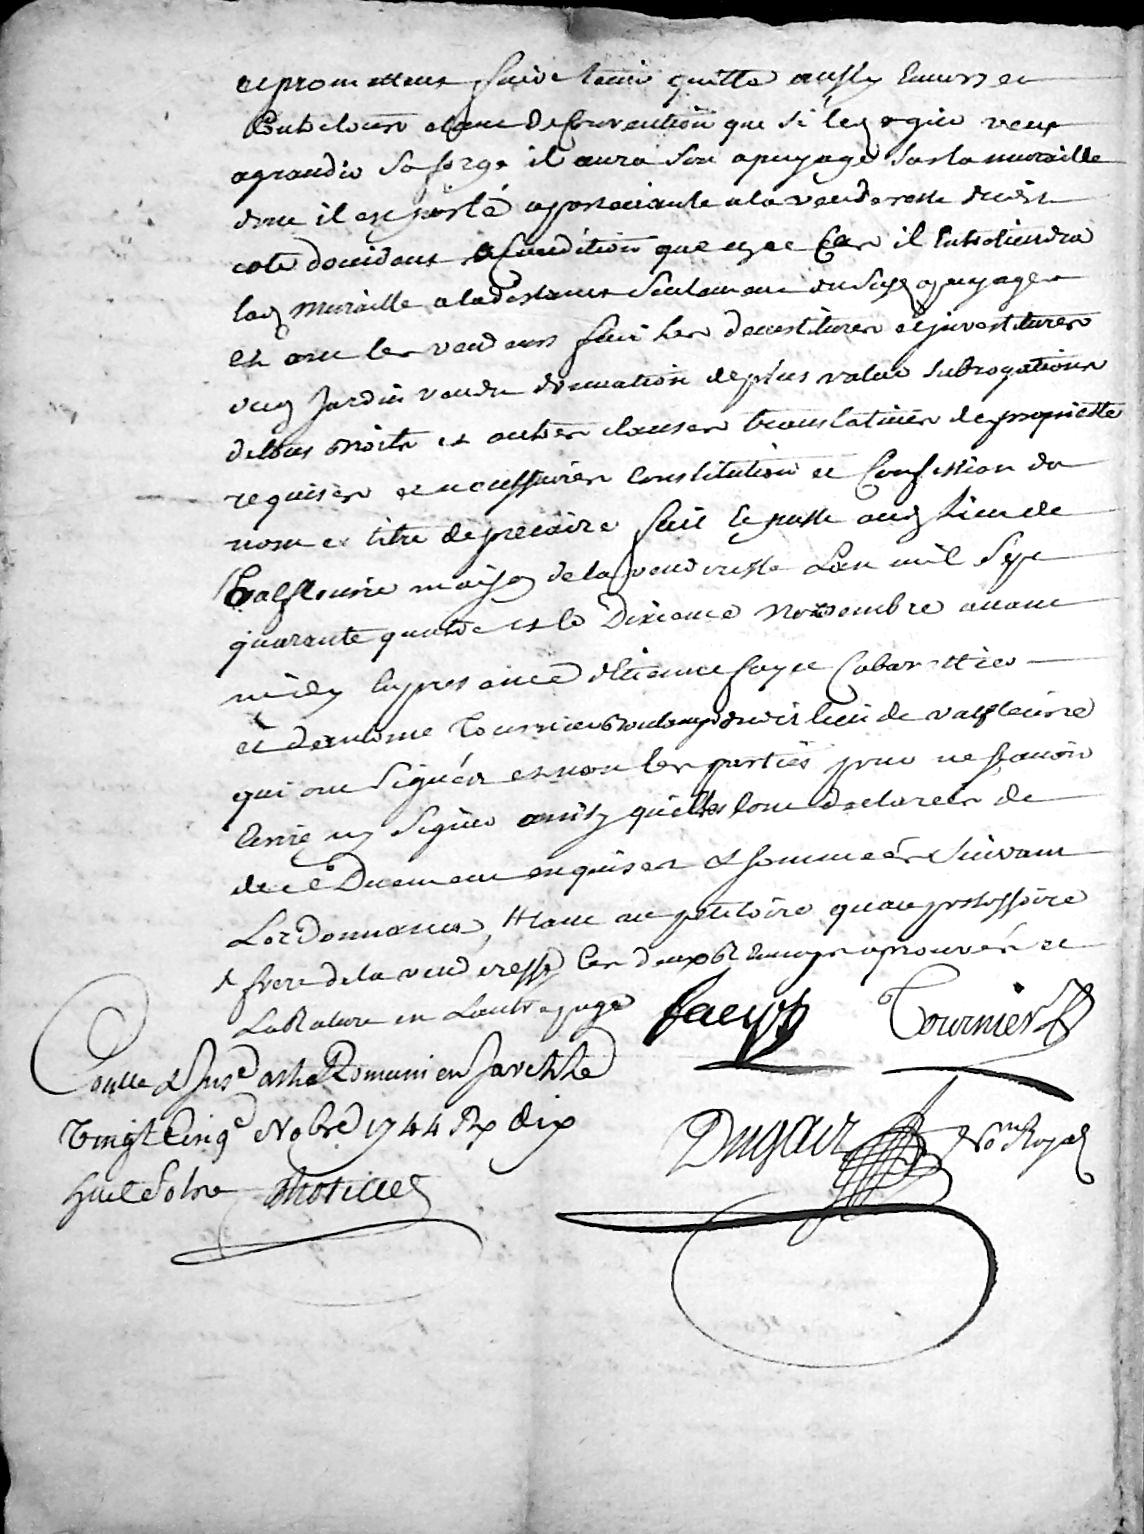 et promettent faire tenir quitte aussy envers et
Contre tous etant De Convention que si led. veut
agrandir sa forge il aura son apuyage sur la muraille
dont il est parlé appartenante a la venderesse du
coté d'occident a Condition que en ce Cas il Entretiendra
lad. muraille a la distance Seulement dud. apuyage
et ont les vendeurs fait les devestitures et jnvestitures
dud. Jardin vendu donnation de plus value subrogations
de tous droits et autres clauses translatives de proprietté
requises et necessaires Constitution et Confession de
nom et titre de precaire fait et passé aud. Lieu de
Valfleurie maison de la venderesse L'an mil Sept
quarante quatre et le Dixieme Novembre avant
midy En presance d'Etienne faye Cabarettier
et d'antoine Tournier dud. lieu de valfleurie
qui ont Signéz et non les parties pour ne sçavoir
Ecrire ny Signer ainsy qu'elles l'ont declarées de
de ce Duement enquises & sommées Suivant
L'ordonnance, tant au petitoire qu'au possessoire
& frere de la venderesse Les deux Renvoys aprouvés et
La Rature en L'autre page
faeye Tournier
Conllé & Jnsé a St Romain en Jarest Le
Vingt Cinqe Nobre 1744 Rx dix
huit Sols
Dugair Nore Royal